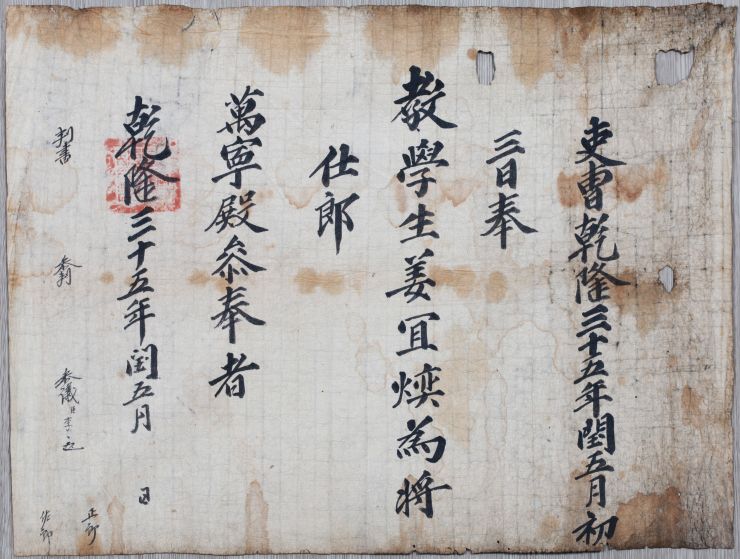 吏曹乾隆三十五年閏五月初
三日奉
教學生姜宜煐為將
仕郎
萬寧殿叅奉者
乾隆三十五年閏五月 日
判書
叅判
叅議臣李
正郎
佐郎